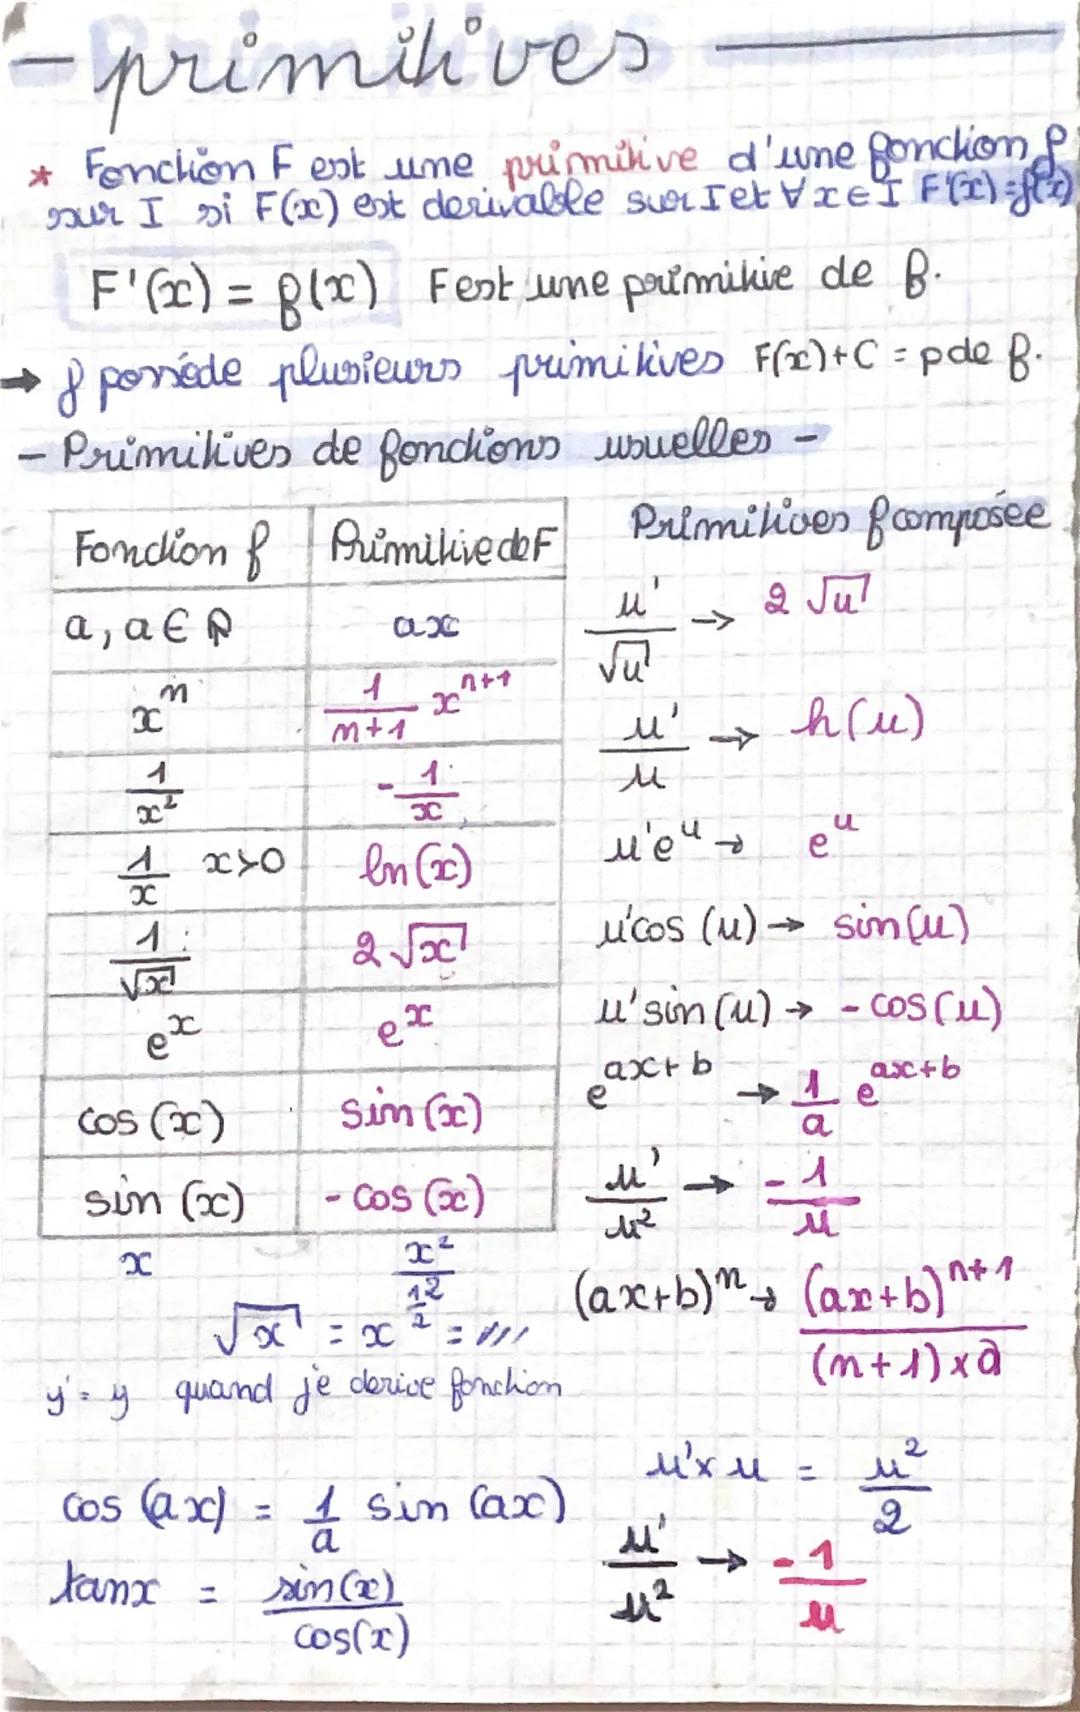 - primitives
* Fonction F est une primitive d'une fonction f
sur I si F(x) est derivable sur I et ∀ x ∈ I F'(x) = f(x)
F'(x) = f(x) F est une primitive de f.
→ f posséde plusieurs primitives F(x)+C = p de f.
- Primitives de fonctions usuelles -
Fonction f | Primitive de F
a, a ∈ R | ax
x^n | 1/(n+1) x^(n+1)
1/x² | -1/x
1/x x>0 | ln(x)
1/√x | 2√x
e^x | e^x
cos (x) | sin (x)
sin (x) | - cos (x)
x x²/2
√x = x^(1/2) =
y' = y quand je derive fonction
cos (ax) = 1/a sin (ax)
tanx = sin(x)/cos(x)
Primitives f composée
u'/√u → 2√u
u'/u → h(u)
u'e^u → e^u
u'cos (u) → sin(u)
u'sin(u) → - cos(u)
e^(ax+b) → 1/a e^(ax+b)
u'/u² → -1/u
(ax+b)^n → (ax+b)^(n+1)/((n+1)×a)
u'×u = u²/2
u'/u² → -1/u